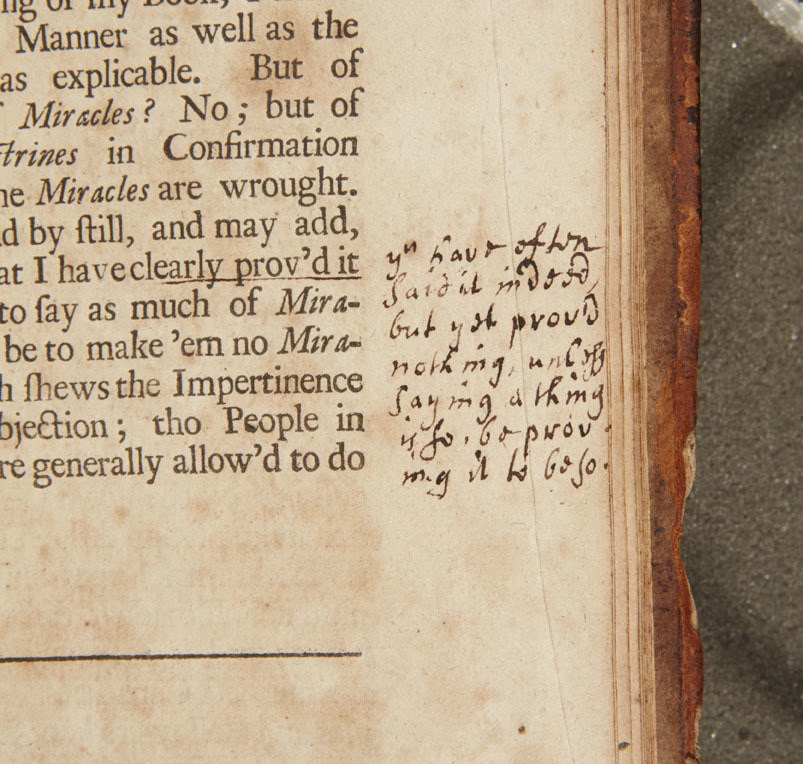 ng of my Book, I
Manner as well as the
as explicable. But of
Miracles? No; but of
ctrines in Confirmation
he Miracles are wrought.
d by ſtill, and may add,
at I have clearly prov'd it
to ſay as much of Mira-
be to make 'em no Mira-
h ſhews the Impertinence
bjection; tho People in
re generally allow'd to do
yu have often
Said it indeed,
but yet prov'd
nothing, unleſs
Saying a thing
is ſo, be prov-
ing it to be ſo.